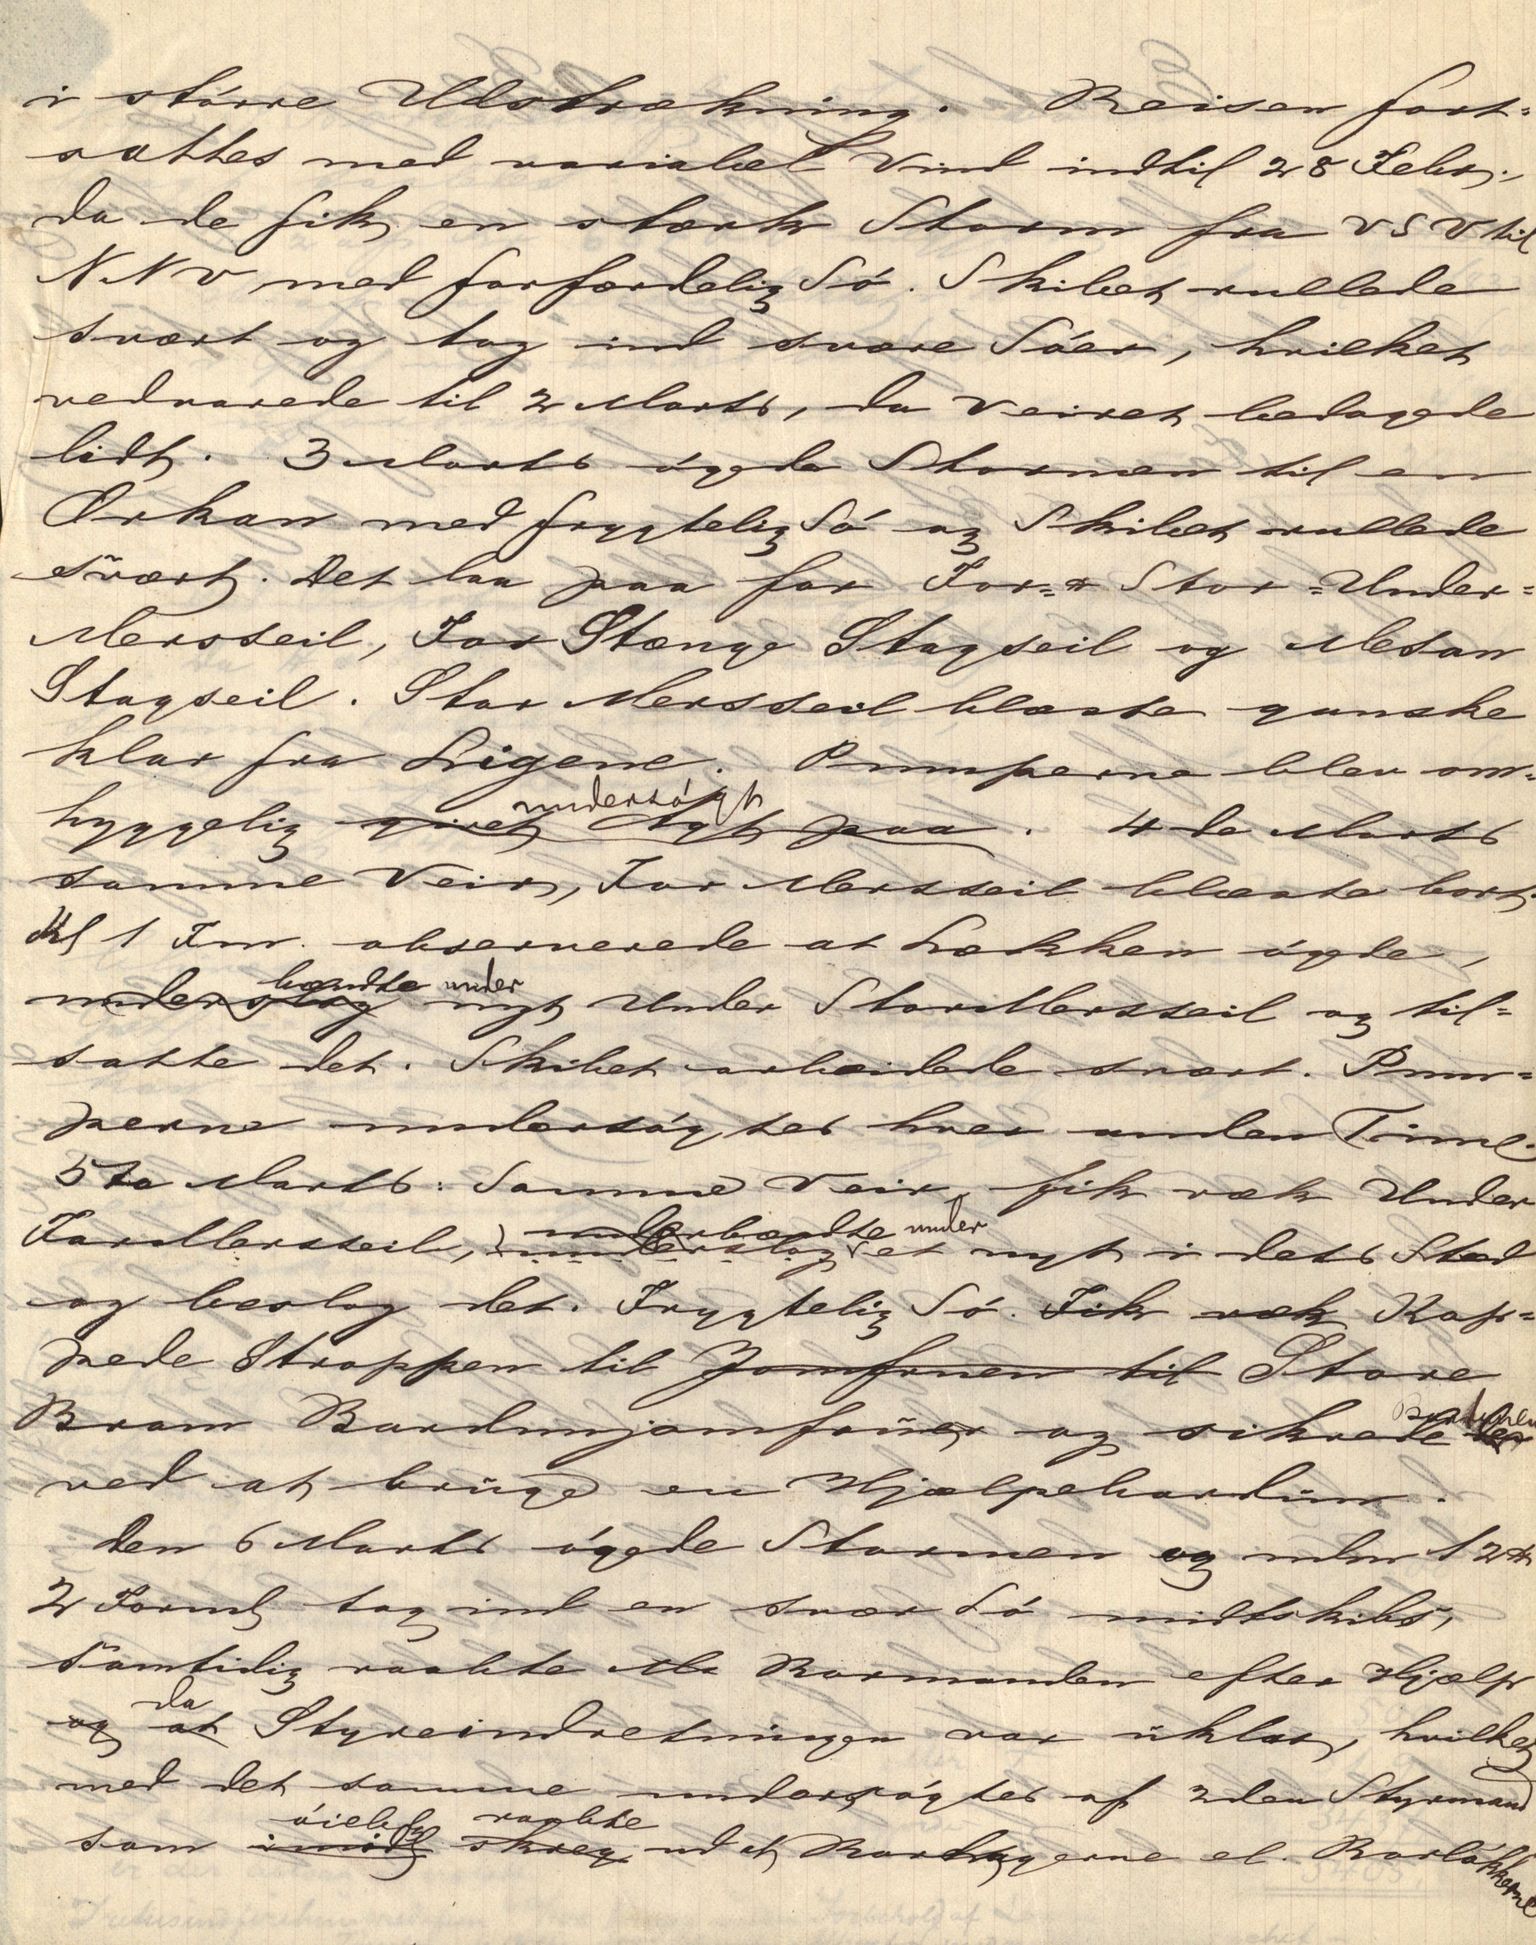 i större Udstrækning. Reisen fort-
sattes med variabel Vind indtil 28 Febr.,
da de fik en stærk Storm fra VSV til
NNV med forfærdelig Sö. Skibet rullede
svært og tog ind svære Söer, hvilket
vedvarede til 2 Marts, da Veiret bedagede
lidt. 3 Marts ögede Stormen til en
Orkan med frygtelig Sö og Skibet rullede
svært. Det laa paa for For- & Stor-Under-
Mersseil, For Stænge Stagseil og Mesan
Stagseil. Stor Mersseil blæste ganske
klar fra Ligene. Pumperne blev om-
undersögt
hyggelig givet Agt paa. 4de Marts
samme Veir, For Mersseil blæste bort.
Kl 1 Fm. observerede at Lækken ögede,
bændte under
underslog nyt Under StorMersseil og til-
satte det. Skibet arbeidede svært. Pum-
perne undersögtes hver anden Time.
5te Marts: Samme Veir, fik væk Under
underbændte under
ForMersseil, underslog et nyt i dets Sted
og beslog det. Frygtelig Sö. Fik væk Kap-
pede Stroppen til Jomfruen til Store
Bram Bardunjomfruer og sikrede
Bardunen
ved at bruge en Hjælpebardun.
den 6 Marts ögede Stormen og mlm 12 &
2 Formd tog ind en svær Sö midtskibs,
samtidig raabte Rormanden efter Hjælp
da
og at Styreindretningen var uklar, hvilket
med det samme undersögtes af 2den Styrmand
öiebl. raabte
som skreg ud at Rortugerne el. Rorlökkerne